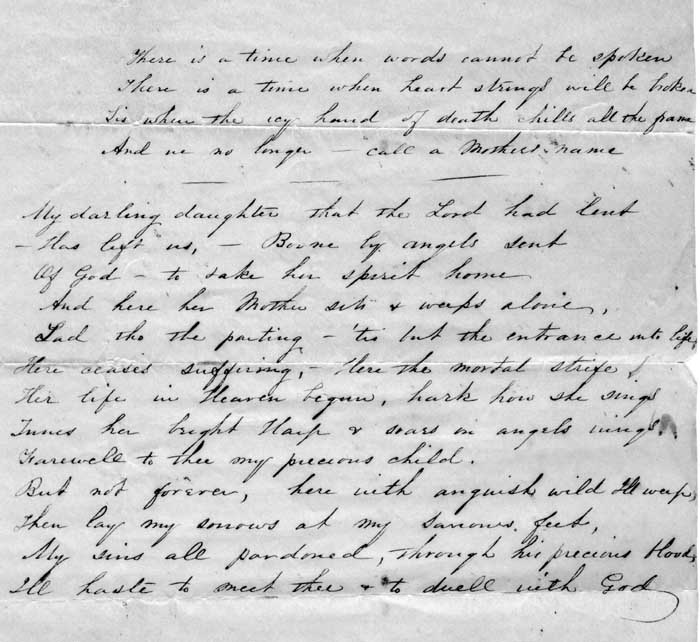 There is a time when words cannot be spoken
There is a time when heart strings will be broken
Tis when the icy hand of death chills all the frame
And we no longer – call a Mothers name
My darling daughter that the Lord had lent
– Has left us, – Boone by angels sent
Of God – to take her spirit home
And here her Mother sits & weeps alone,
Sad tho the parting – 'tis but the entrance into life,
Here ceases suffiring, – Here the mortal strife
Her life in Heaven begun, hark how she sings
Tunes her bright Harp & soars on angels wings.
Farewell to thee my precious child.
But not forever, here with anguish wild I'll weep,
Then lay my sorrows at my Saviours feet,
My sins all pardoned, through his precious blood,
I'll haste to meet thee & to dwell with God